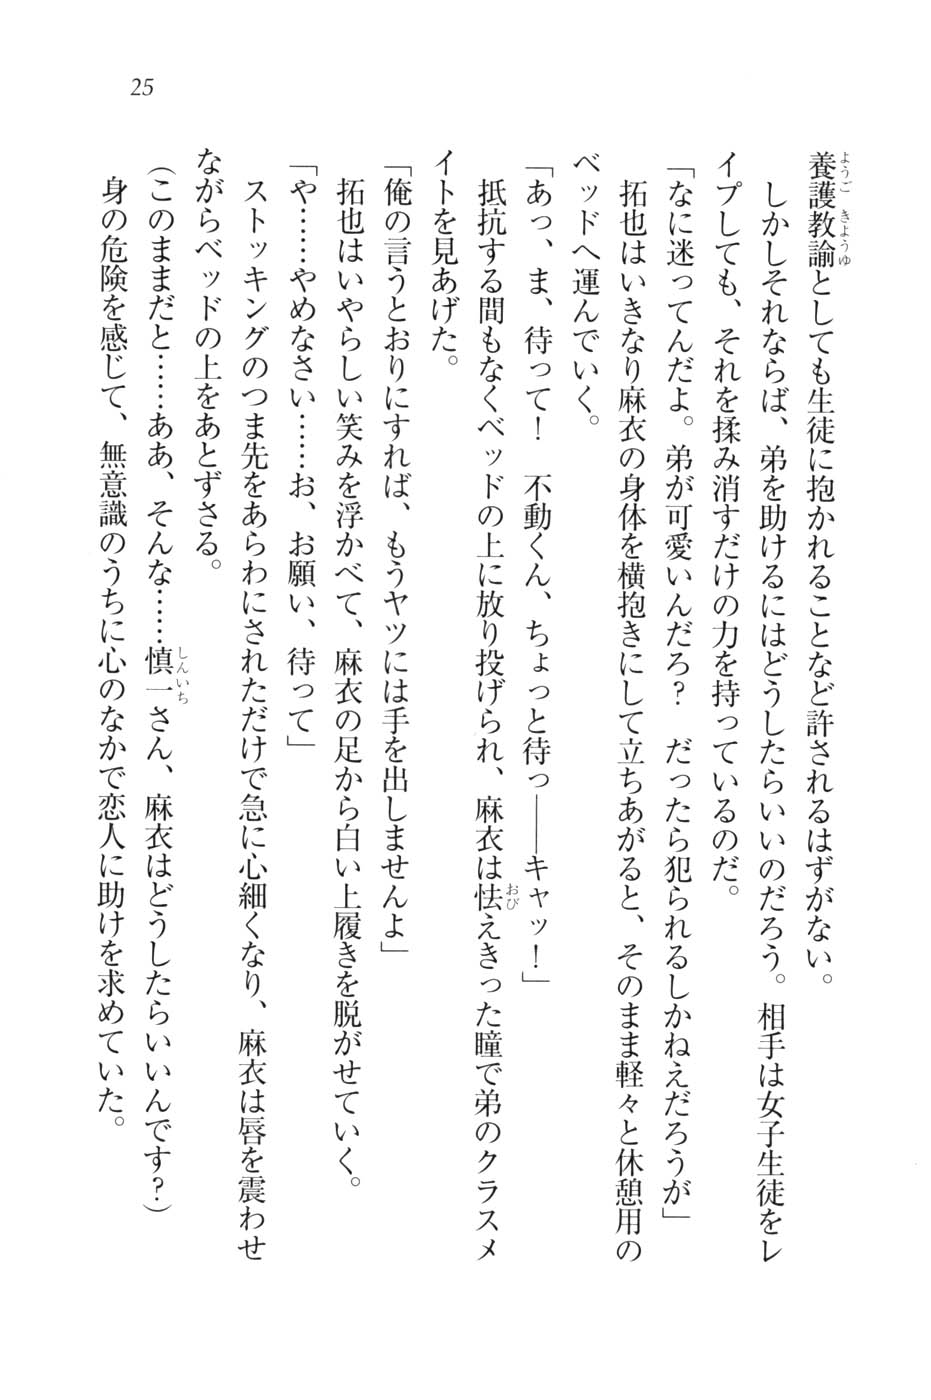 25
養護教諭としても生徒に抱かれることなど許されるはずがない。
しかしそれならば、弟を助けるにはどうしたらいいのだろう。相手は女子生徒をレ
イプしても、それを揉み消すだけの力を持っているのだ。
「なに迷ってんだよ。弟が可愛いんだろ？　だったら犯られるしかねえだろうが」
拓也はいきなり麻衣の身体を横抱きにして立ちあがると、そのまま軽々と休憩用の
ベッドへ運んでいく。
「あっ、ま、待って！　不動くん、ちょっと待っ――キャッ！」
抵抗する間もなくベッドの上に放り投げられ、麻衣は怯えきった瞳で弟のクラスメ
イトを見あげた。
「俺の言うとおりにすれば、もうヤツには手を出しませんよ」
拓也はいやらしい笑みを浮かべて、麻衣の足から白い上履きを脱がせていく。
「や……やめなさい……お、お願い、待って」
ストッキングのつま先をあらわにされただけで急に心細くなり、麻衣は唇を震わせ
ながらベッドの上をあとずさる。
（このままだと……ああ、そんな……慎一さん、麻衣はどうしたらいいんです？）
身の危険を感じて、無意識のうちに心のなかで恋人に助けを求めていた。